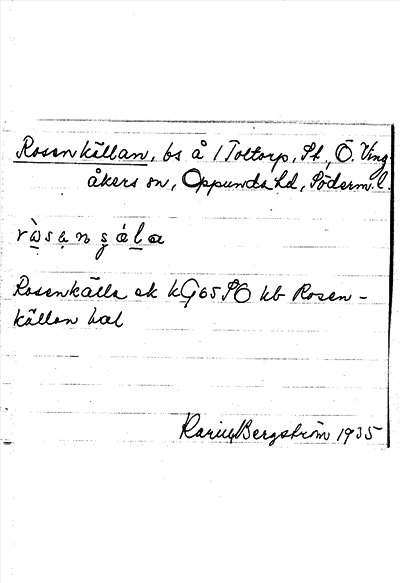 Rosenkällan, bs å 1 Toltorp, St, Ö. Ving-
åkers sn, Oppunda hd, Söderm. l.
Rosenkälla ek kG65SO kb Rosen-
källan hal
Karin Bergström 1935